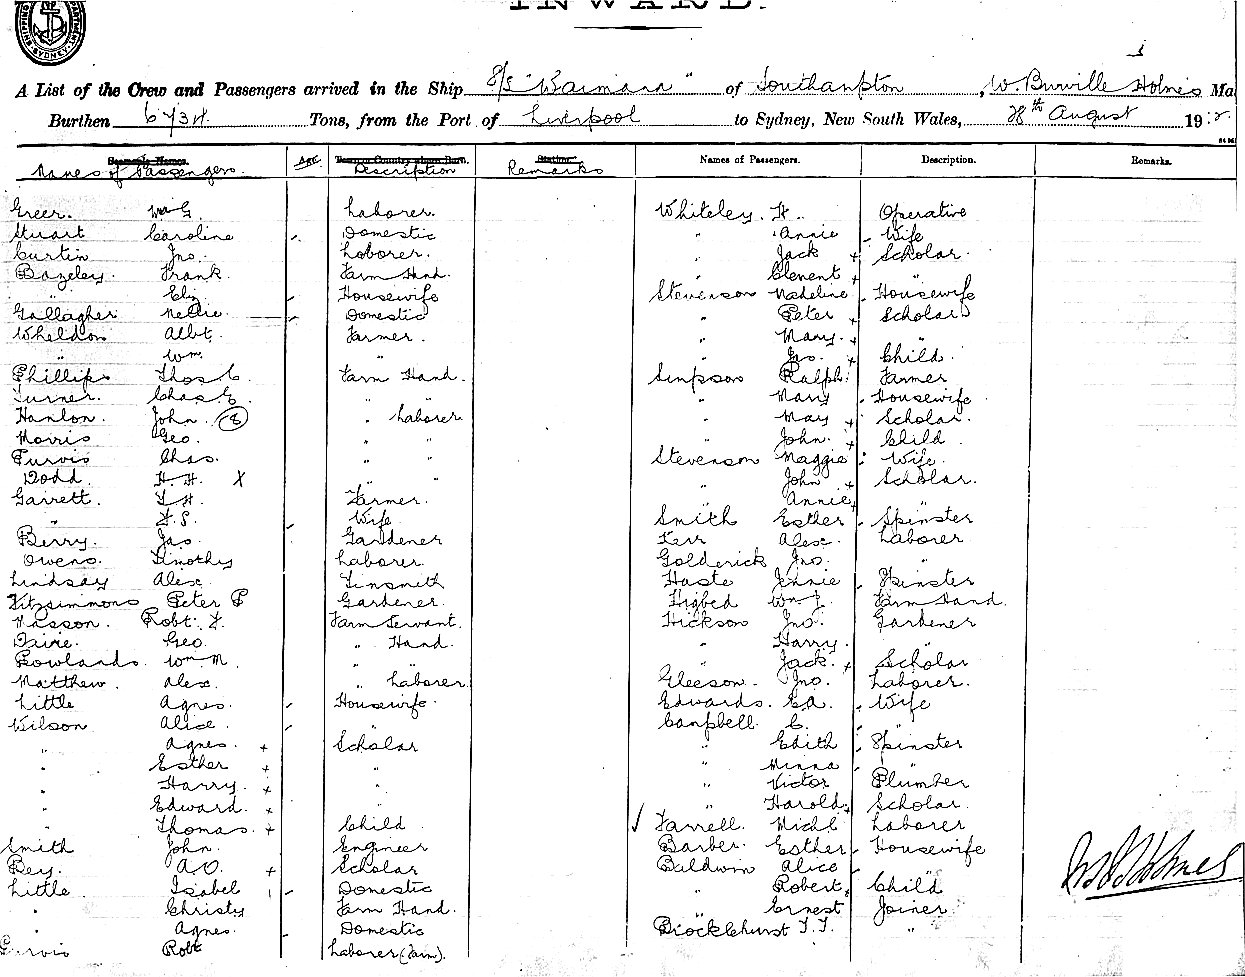 INWARD.
A List of the Crew and Passengers arrived in the Ship S/S "Waimana" of Southampton, W. Burville Holmes Ma
Burthen Tons, from the Port of Liverpool to Sydney, New South Wales, 28th August 191
Names of Passengers. Age Description Remarks
Names of Passengers. Description. Remarks.
Greer. Wm G. Laborer.
Stuart Caroline Domestic
Curtin Jno. Laborer.
Bazeley. Frank Farm Hand.
" Eliz Housewife
Gallagher Nellie Domestic
Wheldon Albt. Farmer.
" Wm. "
Phillips Thos C. Farm Hand.
Turner. Chas E. " "
Hanlon. John. (8) " Laborer
Morris Geo. " "
Purvis Chas. " "
Dodd H.H. X " "
Garrett. Farmer.
" Wife
Berry. Jas. Gardener
Owens. Timothy Laborer.
Lindsay Alex. Tinsmith
Fitzsimmons Peter P Gardener.
Masson. Robt. F. Farm Servant.
Geo. " Hand.
Rowlands. Wm M.
Matthew. Alex. " Laborer
Little Agnes. Housewife.
Wilson Alice. "
" Agnes. + Scholar
" Esther + "
" Harry. + "
" Edward. +
" Thomas. + Child
Smith John. Engineer
Bey. A.O. + Scholar
Little Isabel Domestic
" Christy Farm Hand.
" Agnes. Domestic
Purvis Robt Laborer (Farm).
Whiteley. H. Operative
" Annie Wife
" Jack + Scholar.
" Clement + "
Stevenson Madeline Housewife
" Peter + Scholar
" Mary. + "
" Jas. + Child.
Simpson Ralph. Farmer
" Mary Housewife
" May + Scholar.
" John. + Child
Stevenson Maggie Wife.
" John + Scholar.
" Annie "
Smith Esther Spinster
Kerr Alex. Laborer
Golderick Jno. "
Haste Jennie Spinster
Higbed Wm J. Farm Hand.
Hickson Jno. Gardener
" Harry. "
" Jack. + Scholar
Gleeson. Jno. Laborer.
Edwards. E.A. Wife
Campbell C. "
" Edith Spinster
" Minna "
" Victor Plumber
" Harold. Scholar.
✓ Farrell. Michl Laborer
Barber. Esther Housewife
Baldwin Alice "
" Robert. Child
" Ernest Joiner.
Brocklehurst T.J. "